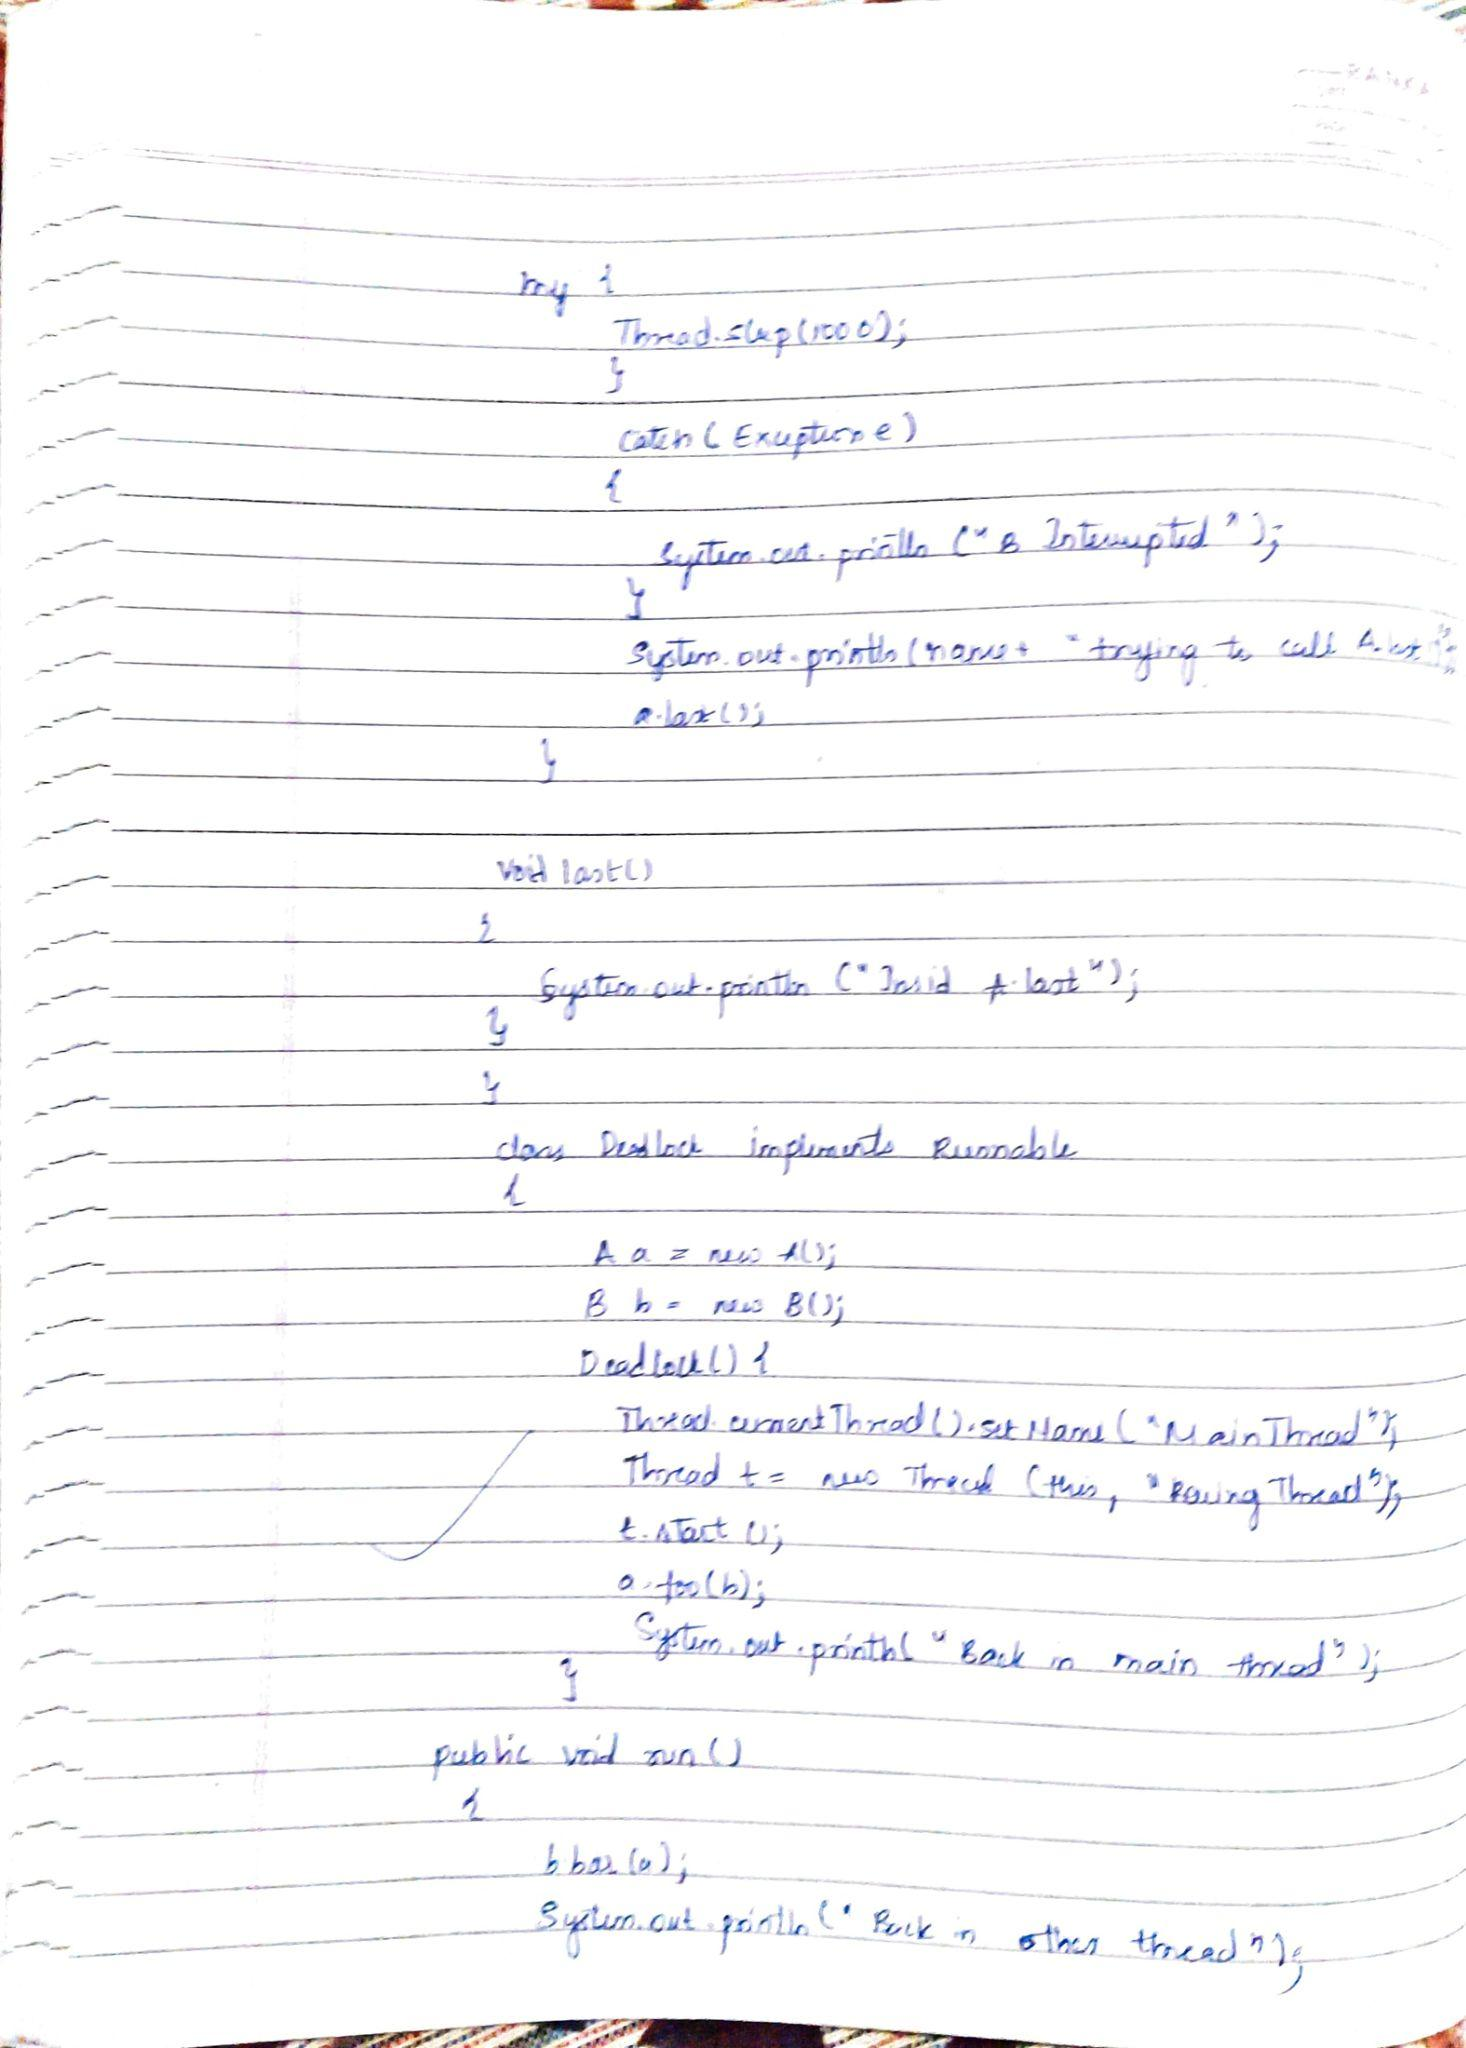 try {
Thread.sleep(1000);
}
catch (Exception e)
{
System.out.println ("B Interrupted");
}
System.out.println(name+ "trying to call A.last
a.last();
}
void last()
{
System.out.println ("Insid A.last");
}
}
class Deadlock implements Runnable
{
A a = new A();
B b = new B();
Deadlock() {
Thread.currentThread().setName("MainThread");
Thread t = new Thread (this, "Racing Thread");
t.start ();
a.foo(b);
System.out.println( "Back in main thread");
}
public void run()
{
b bar(a);
System.out.println("Back in other thread");